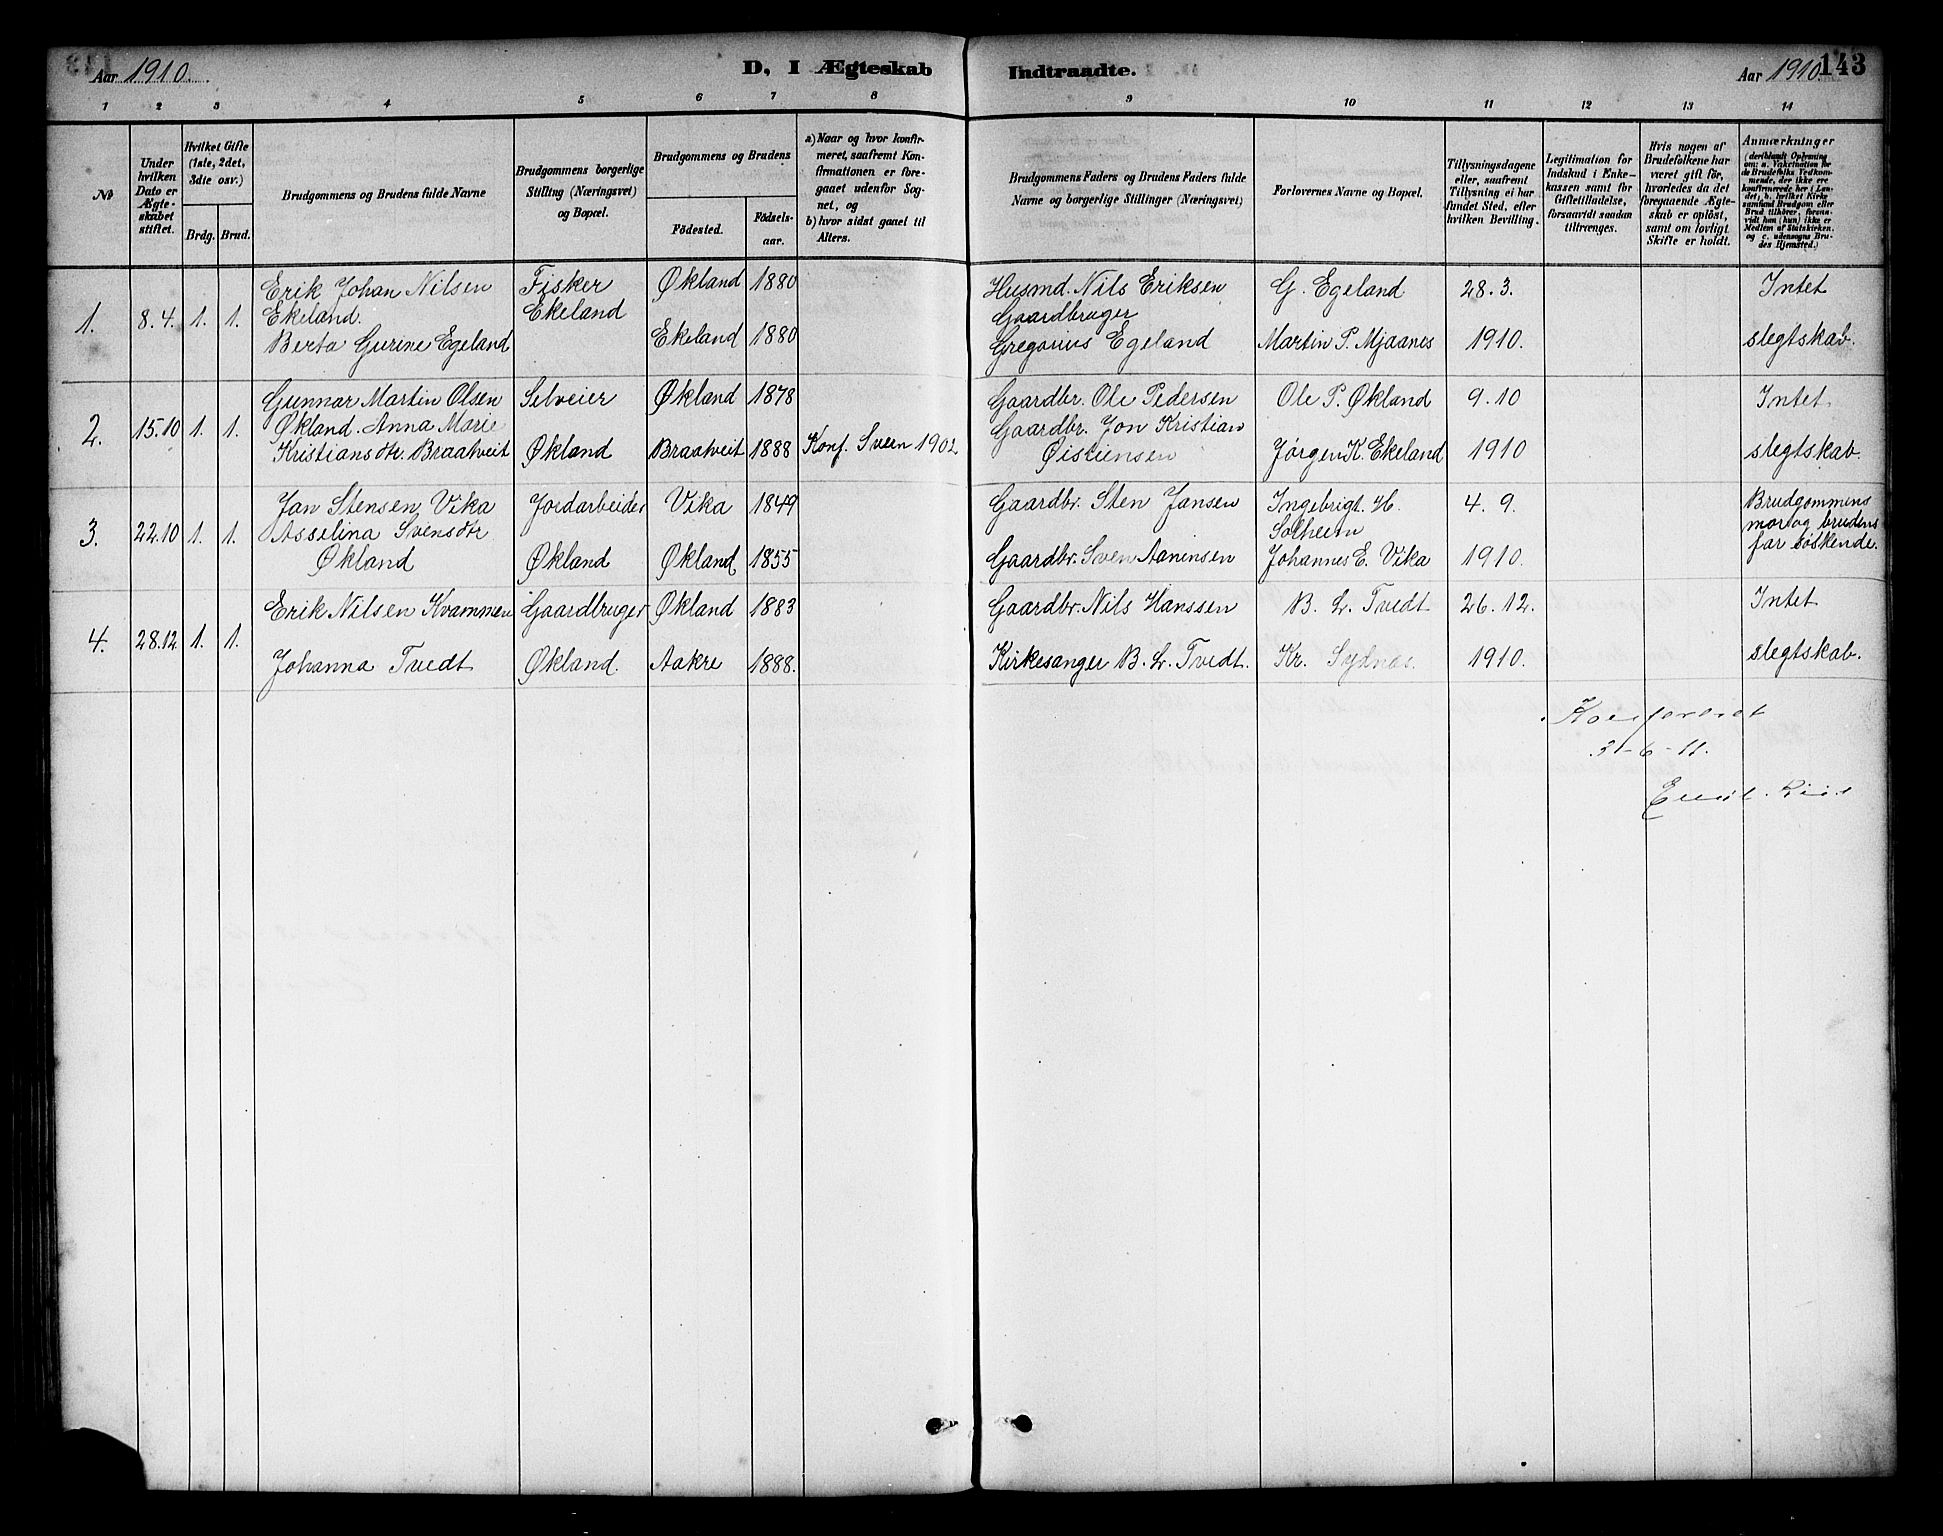 Aar 1910.
D, I Ægteskab Indtraadte.
Aar 1910.
143
1 2 3 4 5 6 7 8 9 10 11 12 13 14
No
Under
hvilken
Dato er
Ægte-
skabet
stiftet.
Hvilket Gifte
(1ste, 2det,
3die osv.)
Brdg. Brud.
Brudgommens og Brudens fulde Navne
Brudgommens borgerlige
Stilling (Næringsvei)
og Bopæl.
Brudgommens og Brudens
Fødested.
Fødsels-
aar.
a) Naar og hvor konfir-
meret, saafremt Kon-
firmationen er fore-
gaaet udenfor Sog-
net, og
b) hvor sidst gaaet til
Alters.
Brudgommens Faders og Brudens Faders fulde
Navne og borgerlige Stillinger (Næringsvei)
Forlovernes Navne og Bopæl.
Tillysningsdagene
eller, saafremt
Tillysning ei har
fundet Sted, efter
hvilken Bevilling.
Legitimation for
Indskud i Enke-
kassen samt for
Giftetilladelse,
forsaavidt saadan
tiltrænges.
Hvis nogen af
Brudefolkene har
været gift før,
hvorledes da det
foregaaende Ægte-
skab er opløst,
samt om lovligt
Skifte er holdt.
Anmærkninger
(deriblandt Oplysning
om: a. Vakcination for
de Brudefolks Vedkom-
mende, der ikke ere
konfirmerede her i Lan-
det, b. hvilket Kirke-
samfund Brudgom eller
Brud tilhører, forsaa-
vidt han (hun) ikke er
Medlem af Statskirken.
og c. udensogns Bru-
des Hjemsted.)
1. 8.4. 1. 1. Erik Johan Nilsen
Ekeland.
Berta Gurine Egeland
Fisker
Ekeland
Økland 1880
Ekeland 1880
Husmd. Nils Eriksen
Gaardbruger
Gregorius Egeland
G. Egeland
Martin P. Mjaanes
28.3.
1910.
Intet
slegtskab.
2. 15.10 1. 1. Gunnar Martin Olsen
Økland. Anna Marie
Kristiansdtr. Braatveit
Selveier
Økland
Økland 1878
Braatveit 1888
Konf. Sveen 1902
Gaardbr. Ole Pedersen
Gaardbr. Jon Kristian
Øistensen
Ole P. Økland
Jørgen K. Ekeland
9.10
1910
Intet
slegtskab.
3. 22.10 1. 1. Jan Stensen Vika
Asselina Svensdtr
Økland
Jordarbeider
Økland
Vika 1849
Økland 1855
Gaardbr. Sten Jansen
Gaardbr. Sven Aanensen
Ingebrigt H.
Solheim
Johannes E. Vika
4.9.
1910.
Brudgommens
mor og brudens
far søskende.
4. 28.12 1. 1. Erik Nilsen Kvammen
Johanna Tvedt
Gaardbruger
Økland.
Økland 1883
Aakre 1888.
Gaardbr. Nils Hanssen
Kirkesanger B. L. Tvedt.
B. L. Tvedt
Kr. Sydnæs.
26.12.
1910.
Intet
slegtskab.
Konfereret
3-6-11.
Emil Riis